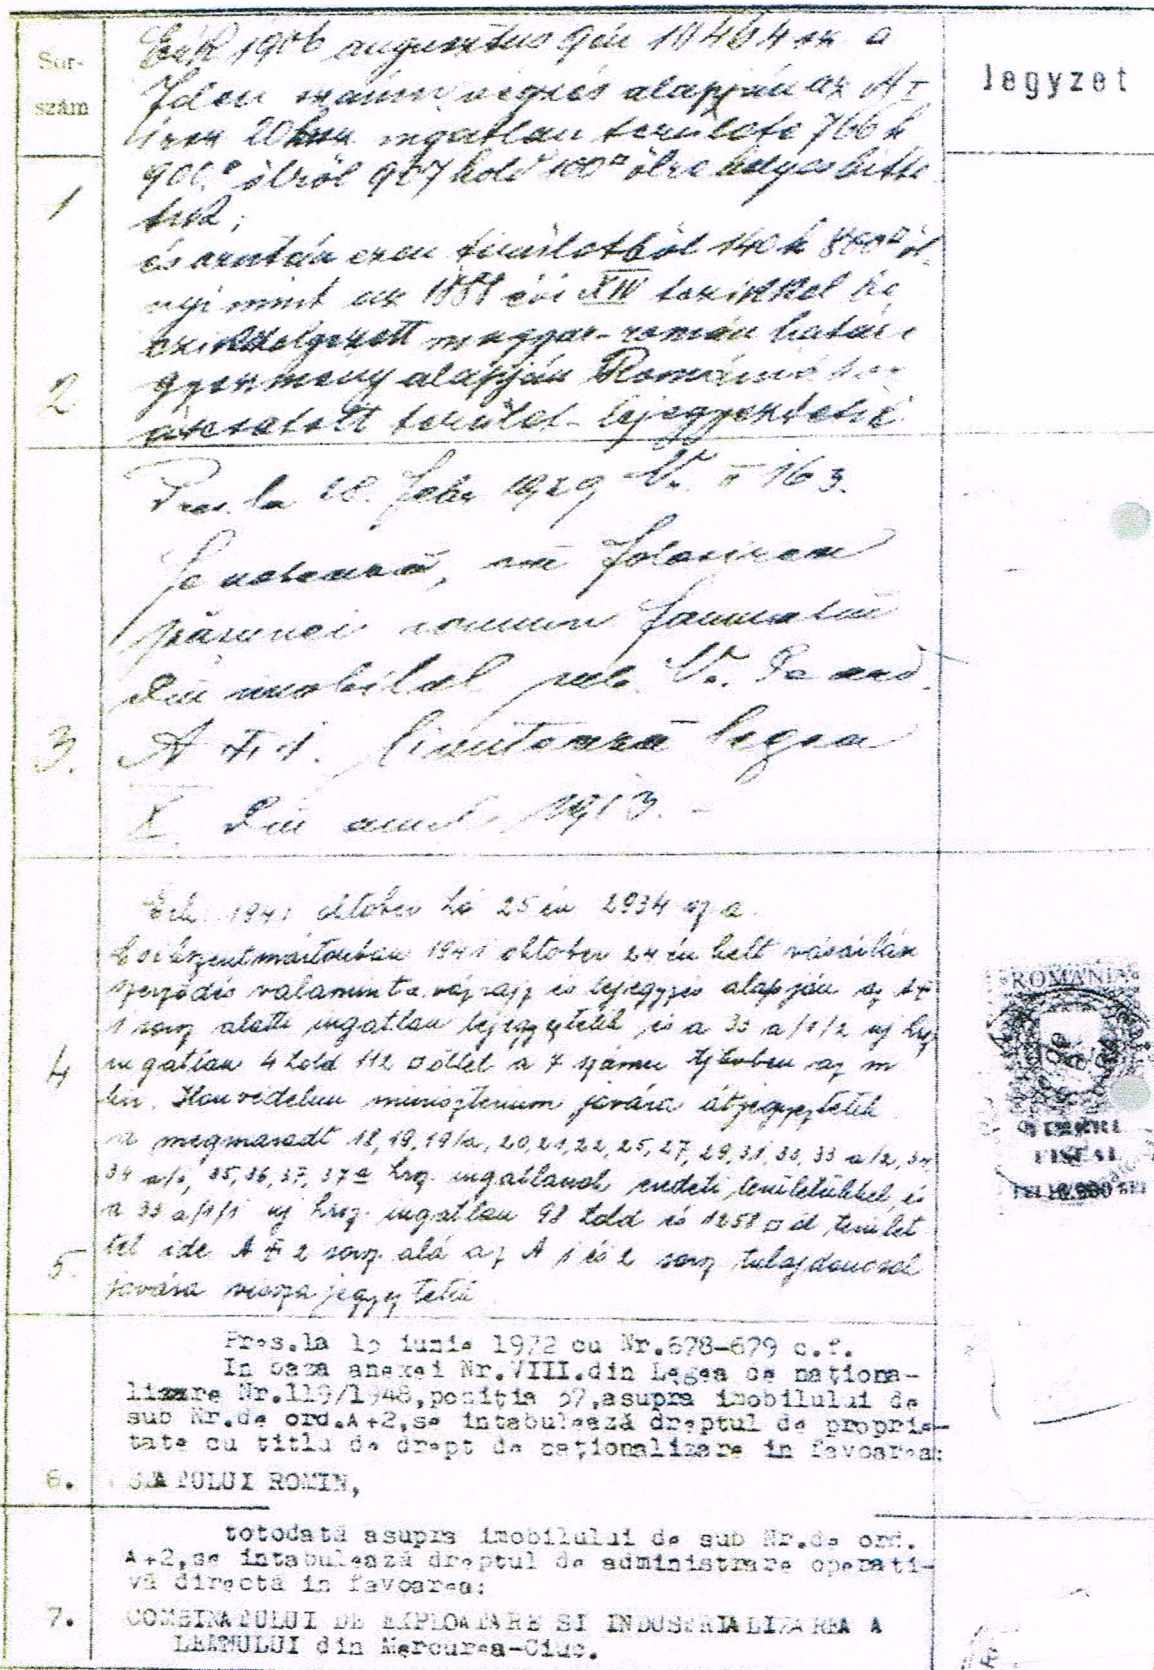 Sor-
szám
Jegyzet
Érk 1906 augusztus 9én
számú végzés alapján az A I
ingatlan területe 766 h
ölről 907 hold 100□ ölre helyesbitte
tik;
1
és azután ezen területből 140 h 800□ öl
nyi mint az 1888 évi XIV
magyar-román határ
alapján Romániá
2
terület lejegyeztetik
Pres. la 28. Febr 1929 Nr. II 163.
Se notează, că folosirea
păsunei comun
din imobilul sub Nr. de ord.
3.
A I, 1. limitează legea
X. din anul 1913.-
Érk. 1941 oktober hó 25 én 2934 sz a.
Csikszentmártonban 1941 oktober 24 én kelt vásárlási
szerződés valamint a vázrajz és lejegyzés alapján az A I
1 sorsz alatti ingatlan lejegyeztetik és a 33 a/1/2 uj hrsz
4
ingatlan 4 hold 112 □ öllel a 7 számu tjkvben az m
kir. Honvédelmi minisztérium javára átjegyeztetik
a megmaradt 18, 19, 19/a, 20, 21, 22, 25, 27, 29, 31, 33, 33 a/2, 34,
34 a/1, 35, 36, 37, 37a hrsz. ingatlanok eredeti területükkel és
a 33 a/1/1 uj hrsz. ingatlan 98 hold és 1258 □ öl terület
5.
tel ide A + 2 sorsz. alá az A 1 és 2 sorsz tulajdonosok
javára vissza jegyeztetik
ROMÂNIA
TIMBRU
FISCAL
Pres.la 15 iunie 1972 cu Nr.678-679 c.f.
In baza anexei Nr.VIII.din Legea de naționa-
lizare Nr.119/1948,poziția 57,asupra imobilului de
sub Nr.de ord.A+2,se intabulează dreptul de proprie-
tate cu titlu de drept de naționalizare in favoarea:
6. STATULUI ROMIN,
totodată asupra imobilului de sub Nr.de ord.
A+2,se intabulează dreptul de administrare operati-
vă directă in favoarea:
7. COMBINATULUI DE EXPLOATARE SI INDUSTRIALIZAREA A
LEMNULUI din Mercurea-Ciuc.